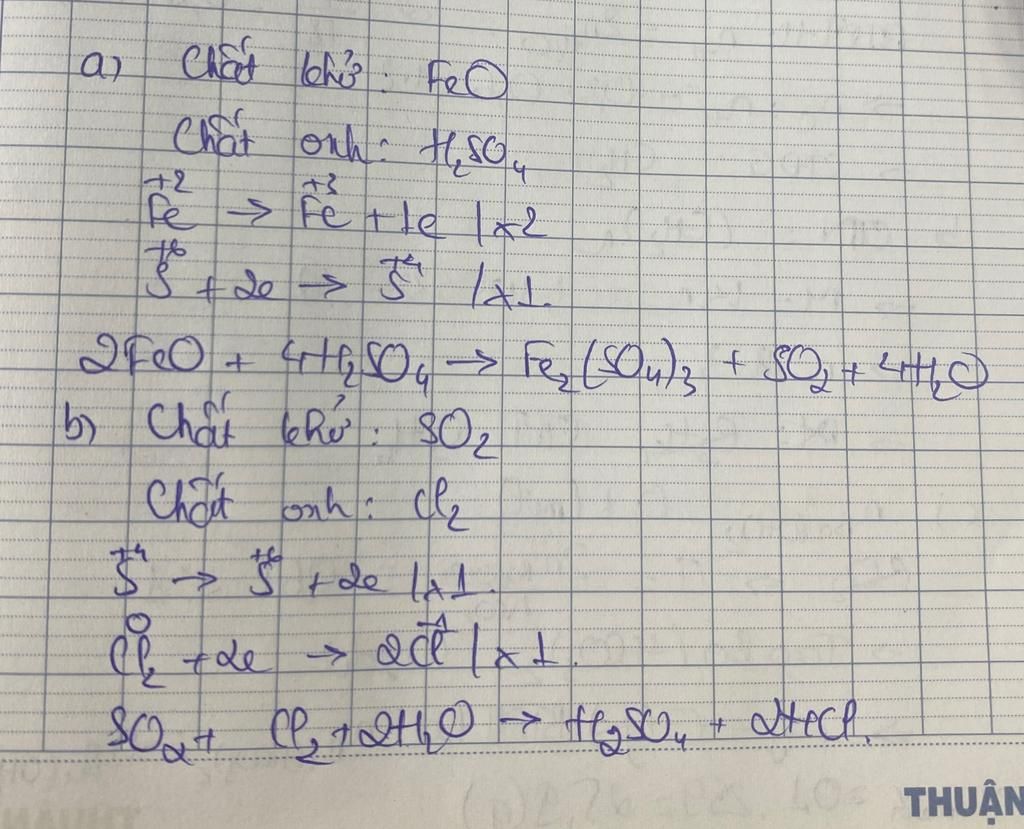 a) Chất khử: FeO
Chất oxh: H₂SO₄
+2 +3
Fe → Fe + 1e | x2
+6 +4
S + 2e → S | x1.
2FeO + 4H₂SO₄ → Fe₂(SO₄)₃ + SO₂ + 4H₂O
b) Chất khử: SO₂
Chất oxh: Cl₂
+4 +6
S → S + 2e | x1.
0 -1
Cl₂ + 2e → 2Cl | x1.
SO₂ + Cl₂ + 2H₂O → H₂SO₄ + 2HCl.
THUẬN